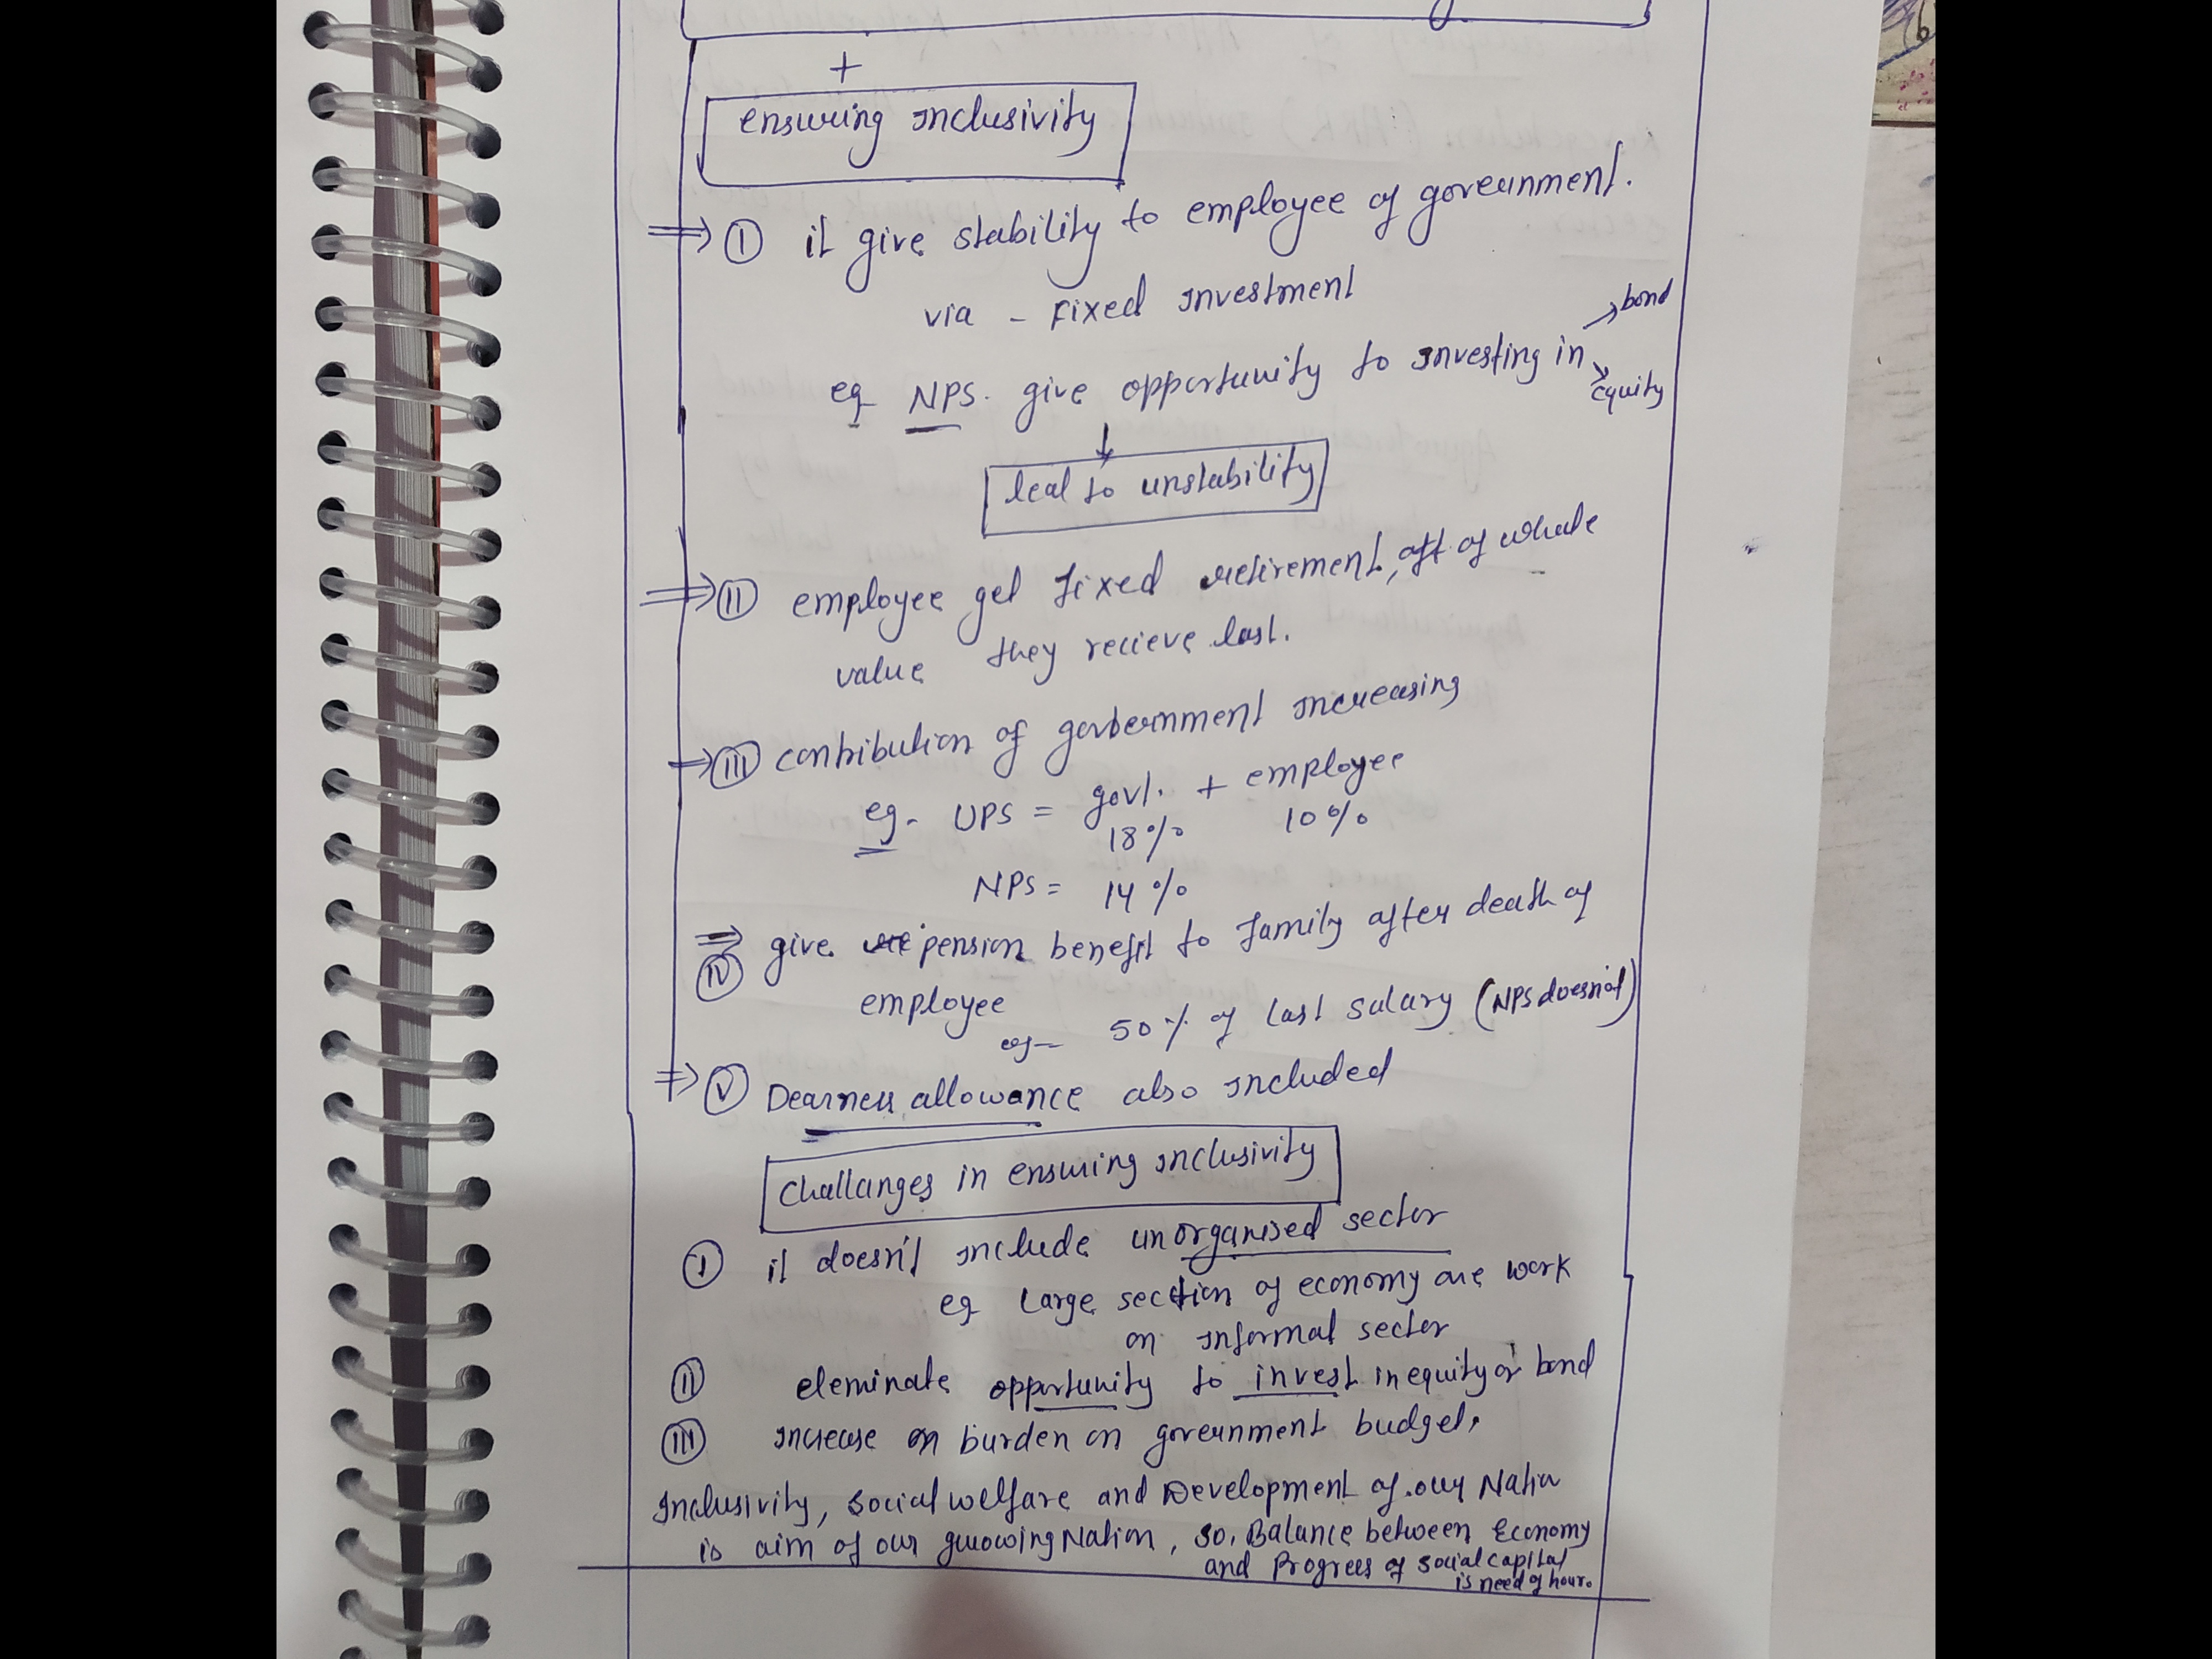 +
ensuring inclusivity
⇒ (I) it give stability to employee of government.
via - Fixed investment
eg NPS. give opportunity to investing in → bond
↘ equity
↓
leal to unstability
⇒ (II) employee get fixed retirement, of whole
value they recieve last.
⇒ (III) contribution of government increasing
eg. UPS = govt. + employee
18% 10%
NPS = 14%
⇒ (IV) give pension benefit to family after death of
employee
eg- 50% of last salary (NPS doesn't)
⇒ (V) Dearness allowance also included
Challanges in ensuring inclusivity
(I) it doesn't include unorganised sector
eg Large section of economy are work
on informal sector
(II) eleminate opportunity to invest in equity or bond
(III) increase on burden on government budget.
Inclusivity, Social welfare and Development of our Nation
is aim of our growing Nation, So, Balance between Economy
and Progress of social capital
is need of hour.